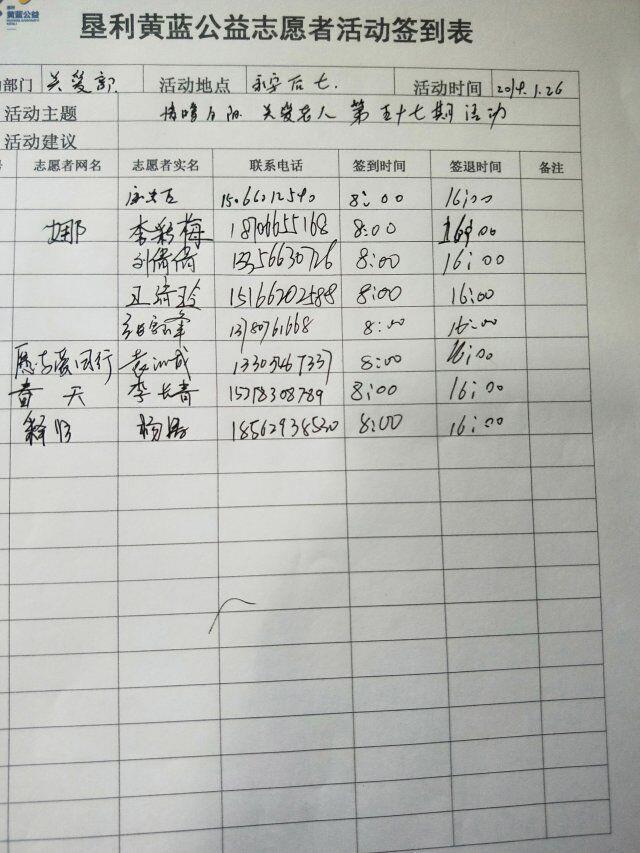 黄蓝公益
垦利黄蓝公益志愿者活动签到表
动部门 关爱部 活动地点 永安后七. 活动时间 2019.1.26
活动主题 关爱老人 第五十七期活动
活动建议
号 志愿者网名 志愿者实名 联系电话 签到时间 签退时间 备注
15066012540 8:00 16:00
娜 李彩梅 18706655168 8:00 16:00
刘倩倩 13356630726 8:00 16:00
王琦玲 15166202588 8:00 16:00
13780761668 8:00 16:00
愿与爱同行 13305467337 8:00 16:00
李长青 15278308789 8:00 16:00
杨 18562938520 8:00 16:00